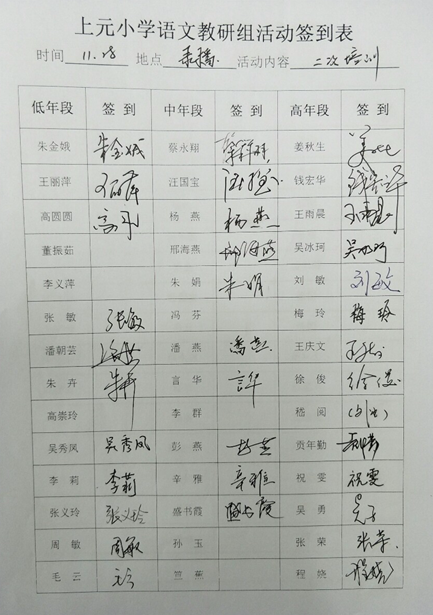 上元小学语文教研组活动签到表
时间 11.28 地点 录播 活动内容 二次培训
低年段 签到 中年段 签到 高年段 签到
朱金娥 朱金娥 蔡永翔 蔡永翔 姜秋生
王丽萍 王丽萍 汪国宝 钱宏华 钱宏华
高圆圆 杨燕 杨燕 王雨晨 王雨晨
董振茹 邢海燕 邢海燕 吴冰珂 吴冰珂
李义萍 朱娟 朱娟 刘敏 刘敏
张敏 张敏 冯芬 梅玲 梅玲
潘朝芸 潘燕 潘燕 王庆文
朱卉 朱卉 言华 言华 徐俊
高崇玲 李群 嵇阅
吴秀凤 吴秀凤 彭燕 彭燕 贡年勤
李莉 李莉 辛雅 辛雅 祝雯 祝雯
张义玲 张义玲 盛书霞 盛书霞 吴勇
周敏 周敏 孙玉 张荣 张荣
毛云 笪蕉 程晓